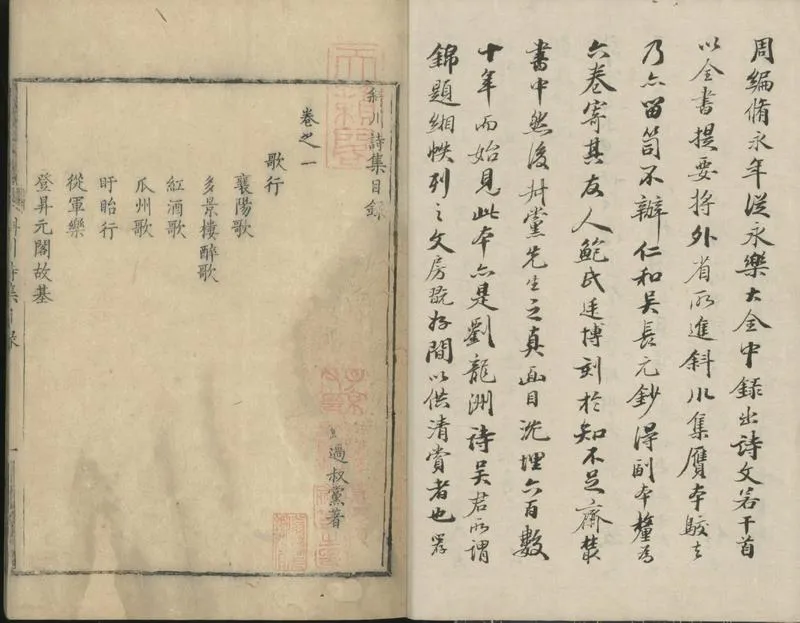 周編脩永年從永樂大全中録出詩文若干首
以全書提要將外省所進斜川集贋本駮去
乃亦留笥不辦仁和吴長元鈔得副本釐為
六卷寄其友人鮑氏廷博刻於知不足齋叢
書中然後叔黨先生之真面目沈埋六百數
十年而始見此本亦是劉龍洲詩吴君所謂
錦題緗帙列之文房既存間以供清賞者也
斜川詩集目録
過叔黨著
卷之一
歌行
襄陽歌
多景樓醉歌
紅酒歌
瓜州歌
盱眙行
從軍樂
登昇元閣故基